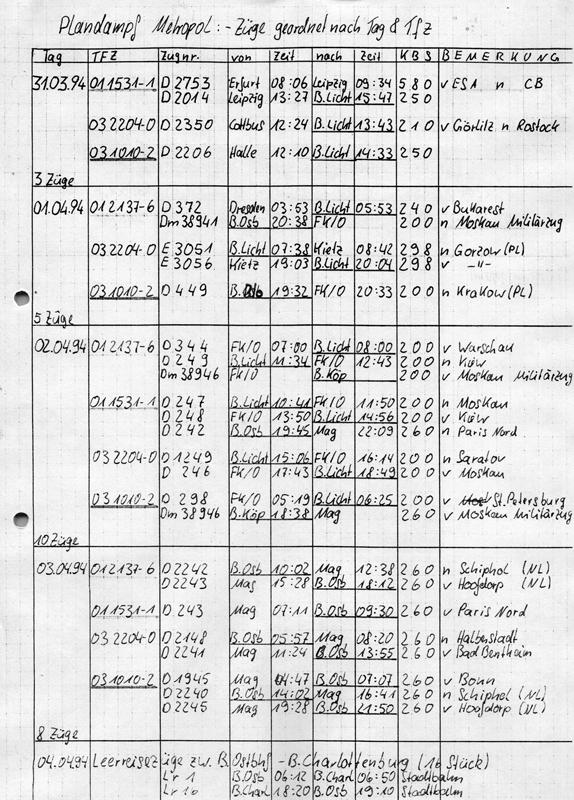 Plandampf Metropol:- Züge geordnet nach Tag & Tfz
Tag TFZ Zugnr. von Zeit nach Zeit KBS BEMERKUNG
31.03.94 011531-1 D 2753 Erfurt 08:06 Leipzig 09:34 580 v ESA n CB
D 2014 Leipzig 13:27 B.Licht 15:47 250
032204-0 D 2350 Cottbus 12:24 B.Licht 13:43 210 v Görlitz n Rostock
031010-2 D 2206 Halle 12:10 B.Licht 14:33 250
3 Züge
01.04.94 012137-6 D 372 Dresden 03:53 B.Licht 05:53 240 v Bukarest
Dm 38941 B.Osb 20:38 FK/O 200 n Moskau Militärzug
032204-0 E 3051 B.Licht 07:38 Kietz 08:42 298 n Gorzow (PL)
E 3056 Kietz 19:03 B.Licht 20:04 298 v -"-
031010-2 D 449 B.Osb 19:32 FK/O 20:33 200 n Krakow (PL)
5 Züge
02.04.94 012137-6 D 344 FK/O 07:00 B.Licht 08:00 200 v Warschau
D 249 B.Licht 11:34 FK/O 12:43 200 n Kiew
Dm 38946 FK/O B.Köp 200 v Moskau Militärzug
011531-1 D 247 B.Licht 10:41 FK/O 11:50 200 n Moskau
D 248 FK/O 13:50 B.Licht 14:56 200 v Kiew
D 242 B.Osb 19:45 Mag 22:09 260 n Paris Nord
032204-0 D 1249 B.Licht 15:06 FK/O 16:14 200 n Saratov
D 246 FK/O 17:43 B.Licht 18:49 200 v Moskau
031010-2 D 298 FK/O 05:19 B.Licht 06:25 200 v St.Petersburg
Dm 38946 B.Köp 18:38 Mag 260 v Moskau Militärzug
10 Züge
03.04.94 012137-6 D 2242 B.Osb 10:02 Mag 12:38 260 n Schiphol (NL)
D 2243 Mag 15:28 B.Osb 18:12 260 v Hoofdorp (NL)
011531-1 D 243 Mag 07:11 B.Osb 09:30 260 v Paris Nord
032204-0 D 2148 B.Osb 05:57 Mag 08:20 260 n Halberstadt
D 2241 Mag 11:24 B.Osb 13:55 260 v Bad Bentheim
031010-2 D 1945 Mag 04:47 B.Osb 07:07 260 v Bonn
D 2240 B.Osb 14:02 Mag 16:41 260 n Schiphol (NL)
D 2245 Mag 19:28 B.Osb 21:50 260 v Hoofdorp (NL)
8 Züge
04.04.94 Leerreisezüge zw. B.Ostbhf - B.Charlottenburg (16 Stück)
Lr 1 B.Osb 06:12 B.Charl 06:50 Stadtbahn
Lr 16 B.Charl 18:20 B.Osb 19:10 Stadtbahn